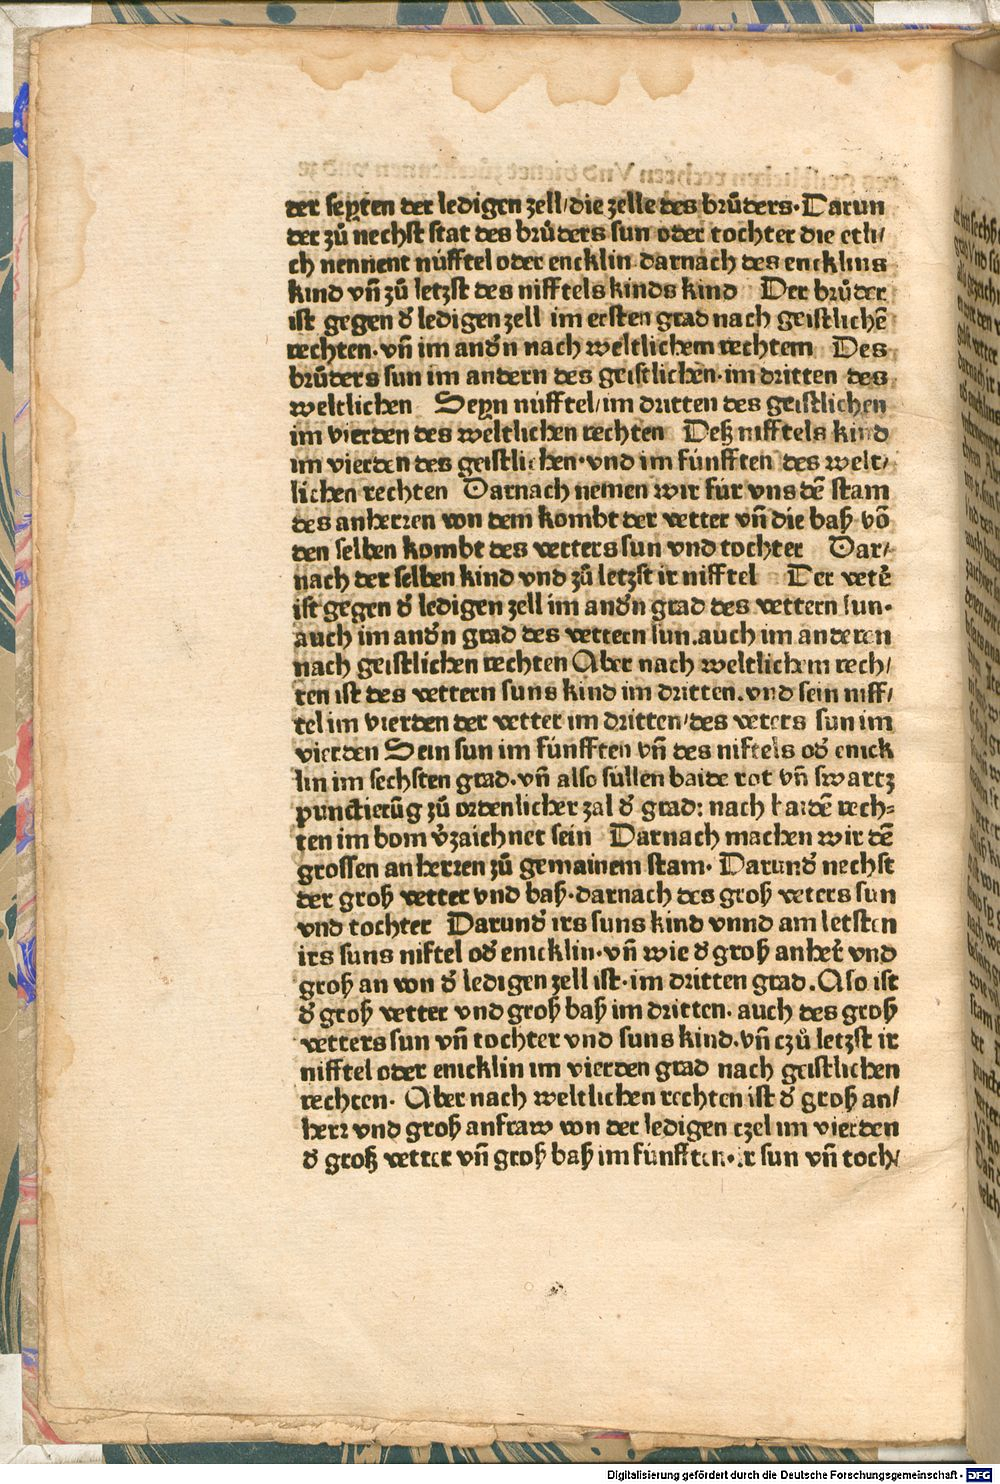 der seyten der ledigen zell/die zelle des brůders·Darun
der zů nechst stat des brůders sun oder tochter die etli/
ch nennent nüfftel oder encklin darnach des encklins
kind vñ zů letzst des nifftels kinds kind Der brůder
ist gegen d̓ ledigen zell im ersten grad nach geistlichē
rechten. vñ im and̓n nach weltlichem rechtem Des
brůders sun im andern des geistlichen·im dritten des
weltlichen Seyn nüfftel/im dritten des geistlichen
im vierden des weltlichen rechten Deß nifftels kind
im vierden des geistlichen·vnd im fünfften des welt/
lichen rechten Darnach nemen wir für vns dē stam
des anherren von dem kombt der vetter vñ die baß võ
den selben kombt des vetters sun vnd tochter Dar/
nach der selben kind vnd zů letzst ir nifftel Der veter̃
ist gegen d̓ ledigen zell im and̓n grad des vettern sun·
auch im and̓n grad des vettern sun.auch im anderen
nach geistlichen rechten Aber nach weltlichem rech/
ten ist des vettern suns kind im dritten.vnd sein niff/
tel im vierden der vetter im dritten/des veters sun im
vierden Sein sun im fünfften vñ des niftels od̓ enick
lin im sechsten grad·vñ also süllen baide rot vñ swartz
punctierūg zů ordenlicher zal d̓ grad: nach baidē rech=
ten im bom v̓zaichnet sein Darnach machen wir dē
grossen anherren zů gemainem stam· Darund̓ nechst
der groß vetter vnd baß·darnach des groß veters sun
vnd tochter Darund̓ irs suns kind vnnd am letsten
irs suns niftel od̓ enicklin·vñ wie d̓ groß anher̃ vnd
groß an von d̓ ledigen zell ist·im dritten grad.Also ist
d̓ groß vetter vnd groß baß im dritten. auch des groß
vetters sun vñ tochter vnd suns kind.vñ czů letzst ir
nifftel oder enicklin im vierden grad nach geistlichen
rechten· Aber nach weltlichen rechten ist d̓ groß an/
herr vnd groß anfraw von der ledigen czel im vierden
d̓ groß vetter vñ groß baß im fünfften·ir sun vñ toch/
Digitalisierung gefördert durch die Deutsche Forschungsgemeinschaft - DFG